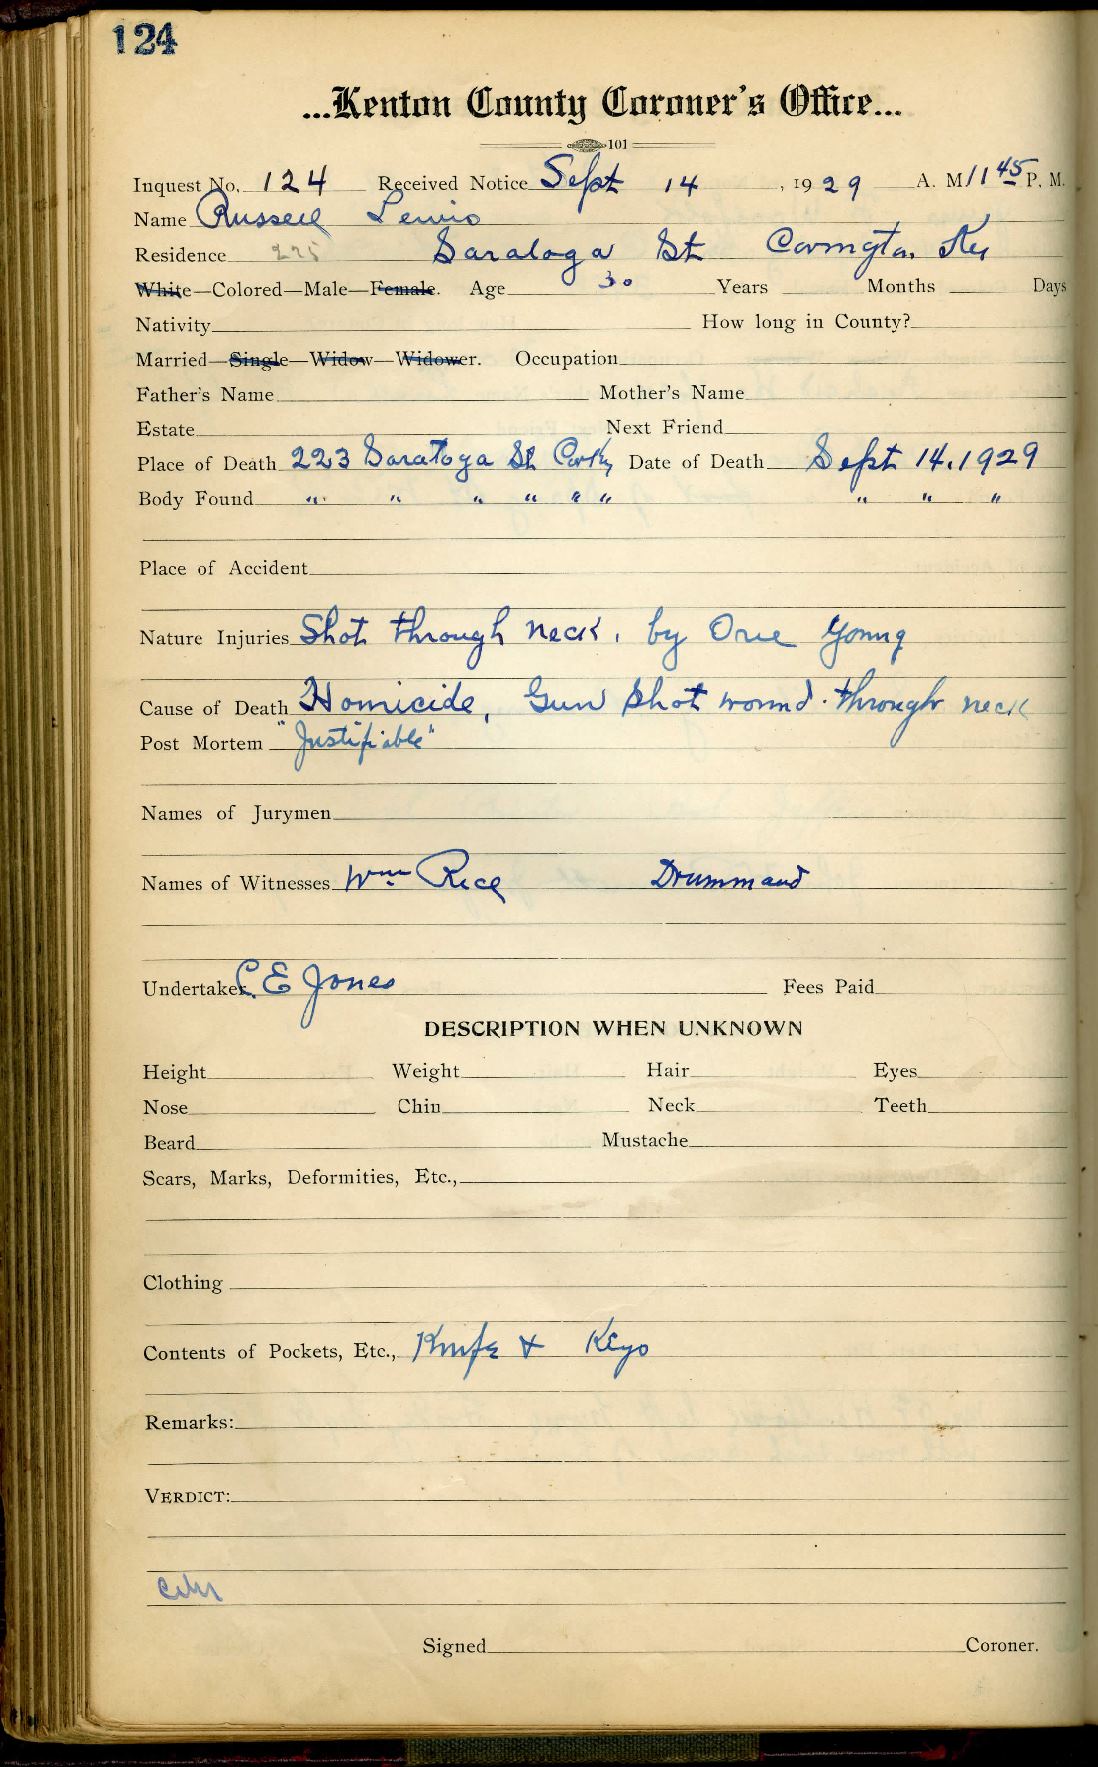 124
...Kenton County Coroner's Office...
101
Inquest No. 124 Received Notice Sept 14, 1929 A. M. 11 45 P. M.
Name Russell Lewis
Residence 225 Saratoga St Covington Ky
White—Colored—Male—Female. Age 30 Years Months Days
Nativity How long in County?
Married—Single—Widow—Widower. Occupation
Father's Name Mother's Name
Estate Next Friend
Place of Death 223 Saratoga St Cov Ky Date of Death Sept 14, 1929
Body Found " " " " " " " " "
Place of Accident
Nature Injuries Shot through neck, by Orie Young
Cause of Death Homicide, Gun Shot wound through neck
Post Mortem "Justifiable"
Names of Jurymen
Names of Witnesses Wm Rice Drummand
Undertaker C. E Jones Fees Paid
DESCRIPTION WHEN UNKNOWN
Height Weight Hair Eyes
Nose Chin Neck Teeth
Beard Mustache
Scars, Marks, Deformities, Etc.,
Clothing
Contents of Pockets, Etc., Knife + Keys
Remarks:
VERDICT:
Signed Coroner.